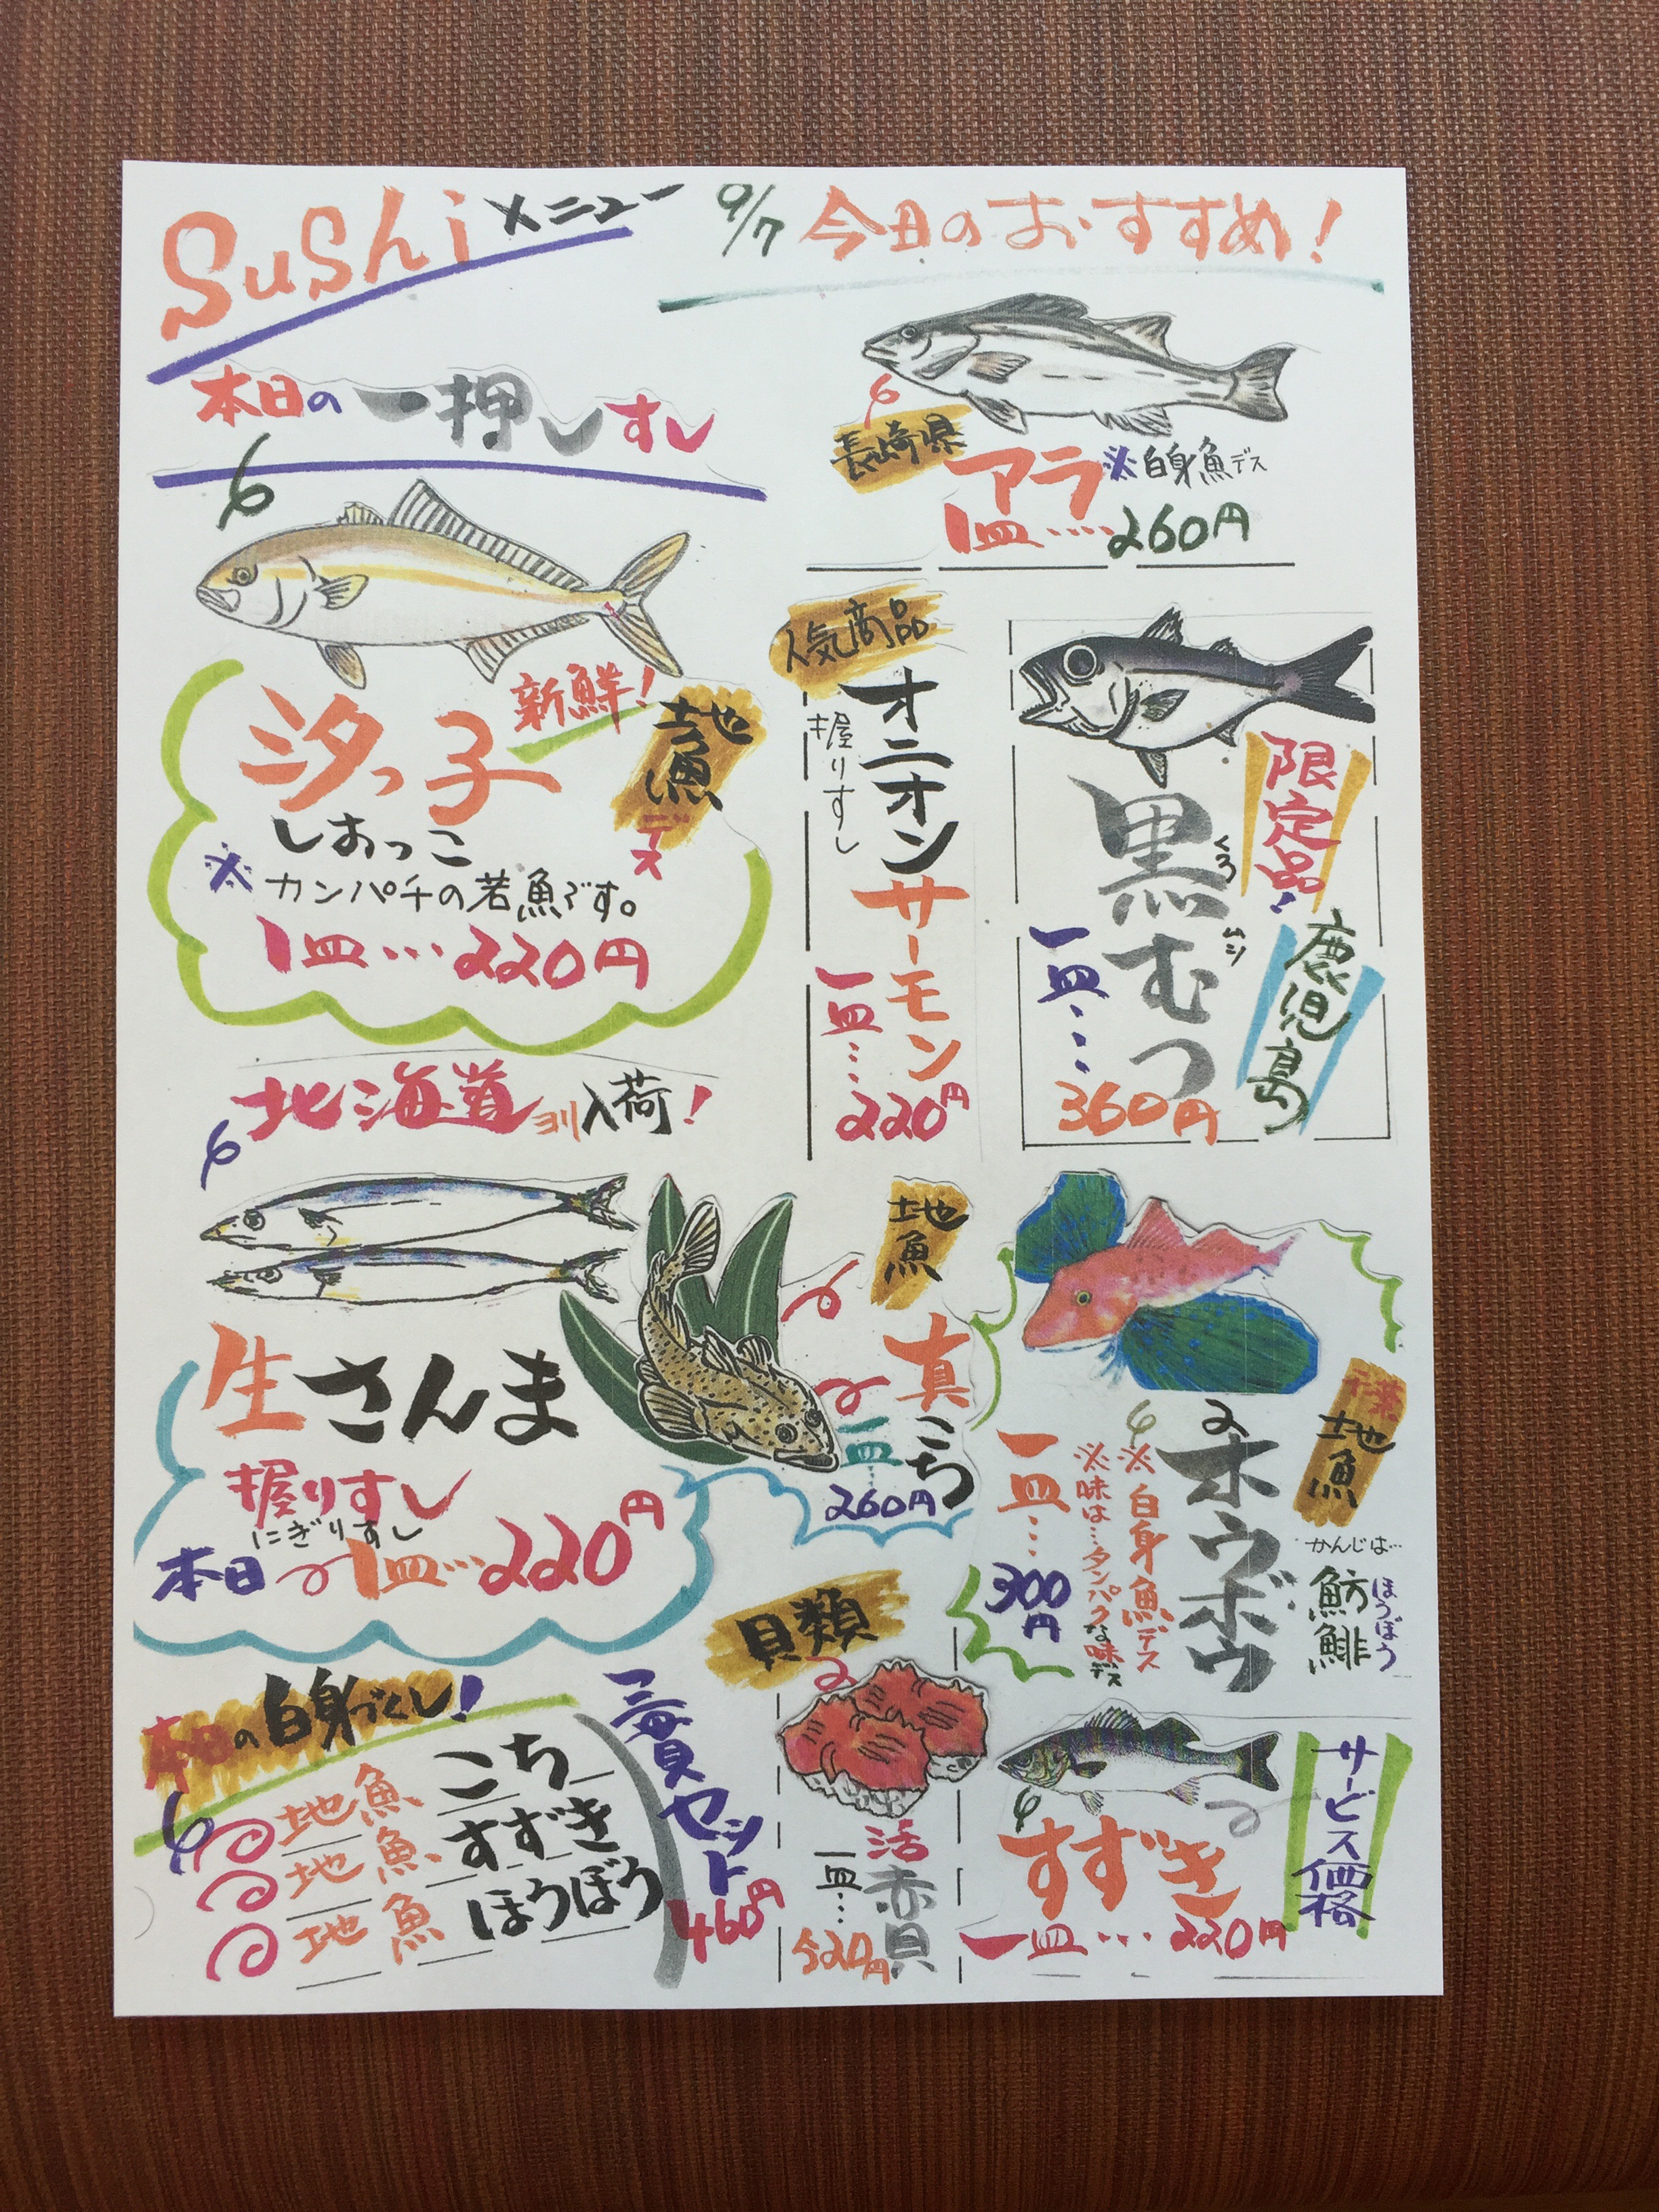 Sushi メニュー
9/7 今日のおすすめ！
本日の一押しすし
新鮮！
地魚デス
汐っ子
しおっこ
※カンパチの若魚です。
1皿…220円
長崎県
アラ ※白身魚デス
1皿……260円
人気商品
オニオンサーモン
握りすし
一皿…220円
限定品！
鹿児島
黒むつ
くろムツ
一皿…360円
北海道ヨリ入荷！
生さんま
握りすし
にぎりすし
本日 1皿…220円
地魚
真こち
一皿…260円
千葉地魚
ホウボウ
かんじは…
魴鮄
ほうぼう
※白身魚デス
※味は…タンパクな味デス
一皿…300円
本日の白身づくし！
地魚 こち
地魚 すずき
地魚 ほうぼう
三貫セット
460円
貝類
活赤貝
一皿…520円
サービス価格
すずき
一皿…220円